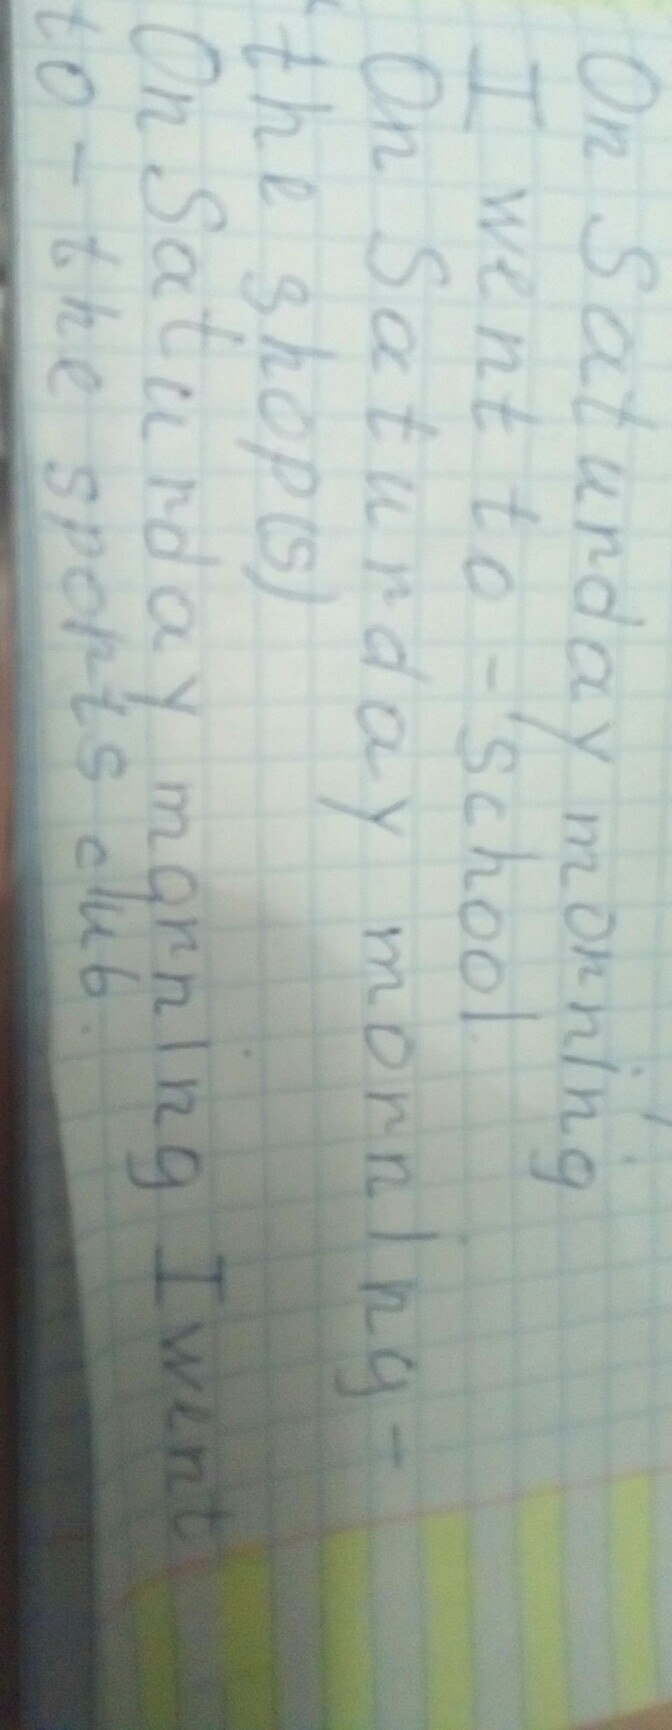 On Saturday morning
I went to - school
On Saturday morning -
the shop(s)
On Saturday morning I went
to - the sports club.